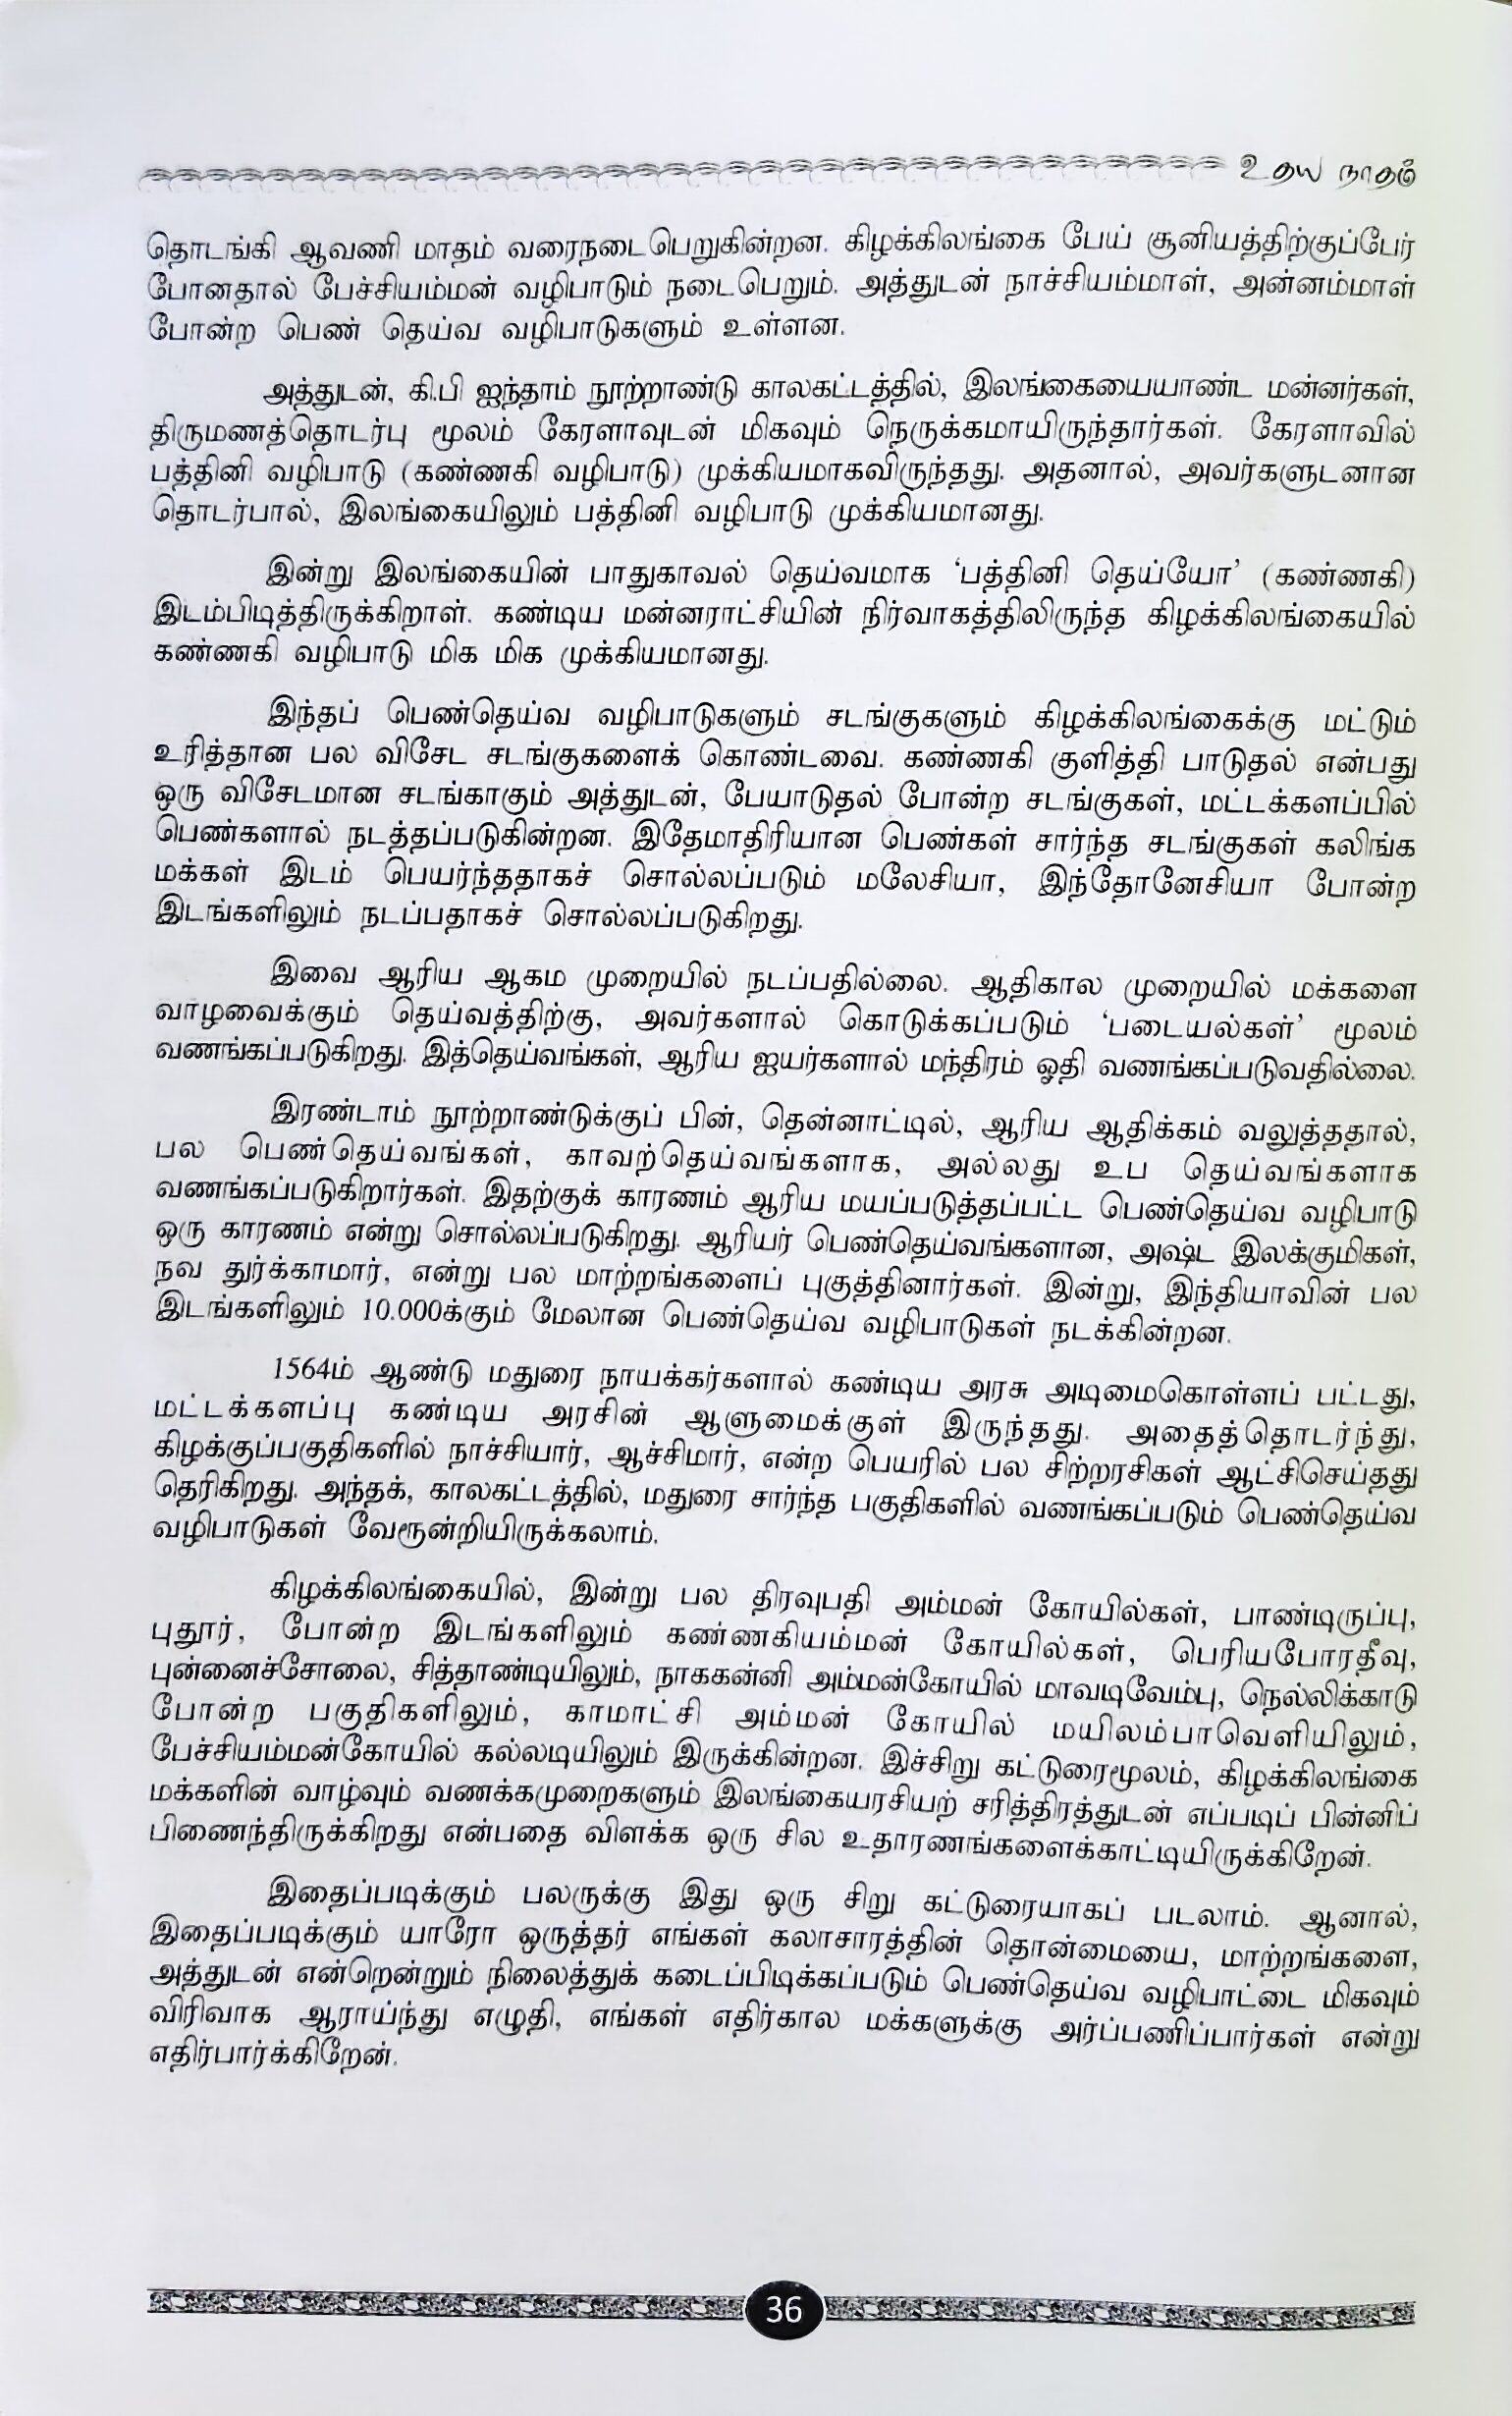 உதய நாதம்
தொடங்கி ஆவணி மாதம் வரைநடைபெறுகின்றன. கிழக்கிலங்கை பேய் சூனியத்திற்குப்பேர்
போனதால் பேச்சியம்மன் வழிபாடும் நடைபெறும். அத்துடன் நாச்சியம்மாள், அன்னம்மாள்
போன்ற பெண் தெய்வ வழிபாடுகளும் உள்ளன.
அத்துடன், கி.பி ஐந்தாம் நூற்றாண்டு காலகட்டத்தில், இலங்கையையாண்ட மன்னர்கள்,
திருமணத்தொடர்பு மூலம் கேரளாவுடன் மிகவும் நெருக்கமாயிருந்தார்கள். கேரளாவில்
பத்தினி வழிபாடு (கண்ணகி வழிபாடு) முக்கியமாகவிருந்தது. அதனால், அவர்களுடனான
தொடர்பால், இலங்கையிலும் பத்தினி வழிபாடு முக்கியமானது.
இன்று இலங்கையின் பாதுகாவல் தெய்வமாக ‘பத்தினி தெய்யோ’ (கண்ணகி)
இடம்பிடித்திருக்கிறாள். கண்டிய மன்னராட்சியின் நிர்வாகத்திலிருந்த கிழக்கிலங்கையில்
கண்ணகி வழிபாடு மிக மிக முக்கியமானது.
இந்தப் பெண்தெய்வ வழிபாடுகளும் சடங்குகளும் கிழக்கிலங்கைக்கு மட்டும்
உரித்தான பல விசேட சடங்குகளைக் கொண்டவை. கண்ணகி குளித்தி பாடுதல் என்பது
ஒரு விசேடமான சடங்காகும் அத்துடன், பேயாடுதல் போன்ற சடங்குகள், மட்டக்களப்பில்
பெண்களால் நடத்தப்படுகின்றன. இதேமாதிரியான பெண்கள் சார்ந்த சடங்குகள் கலிங்க
மக்கள் இடம் பெயர்ந்ததாகச் சொல்லப்படும் மலேசியா, இந்தோனேசியா போன்ற
இடங்களிலும் நடப்பதாகச் சொல்லப்படுகிறது.
இவை ஆரிய ஆகம முறையில் நடப்பதில்லை. ஆதிகால முறையில் மக்களை
வாழவைக்கும் தெய்வத்திற்கு, அவர்களால் கொடுக்கப்படும் ‘படையல்கள்’ மூலம்
வணங்கப்படுகிறது. இத்தெய்வங்கள், ஆரிய ஐயர்களால் மந்திரம் ஓதி வணங்கப்படுவதில்லை.
இரண்டாம் நூற்றாண்டுக்குப் பின், தென்னாட்டில், ஆரிய ஆதிக்கம் வலுத்ததால்,
பல பெண்தெய்வங்கள், காவற்தெய்வங்களாக, அல்லது உப தெய்வங்களாக
வணங்கப்படுகிறார்கள். இதற்குக் காரணம் ஆரிய மயப்படுத்தப்பட்ட பெண்தெய்வ வழிபாடு
ஒரு காரணம் என்று சொல்லப்படுகிறது. ஆரியர் பெண்தெய்வங்களான, அஷ்ட இலக்குமிகள்,
நவ துர்க்காமார், என்று பல மாற்றங்களைப் புகுத்தினார்கள். இன்று, இந்தியாவின் பல
இடங்களிலும் 10.000க்கும் மேலான பெண்தெய்வ வழிபாடுகள் நடக்கின்றன.
1564ம் ஆண்டு மதுரை நாயக்கர்களால் கண்டிய அரசு அடிமைகொள்ளப் பட்டது,
மட்டக்களப்பு கண்டிய அரசின் ஆளுமைக்குள் இருந்தது. அதைத்தொடர்ந்து,
கிழக்குப்பகுதிகளில் நாச்சியார், ஆச்சிமார், என்ற பெயரில் பல சிற்றரசிகள் ஆட்சிசெய்தது
தெரிகிறது. அந்தக், காலகட்டத்தில், மதுரை சார்ந்த பகுதிகளில் வணங்கப்படும் பெண்தெய்வ
வழிபாடுகள் வேரூன்றியிருக்கலாம்.
கிழக்கிலங்கையில், இன்று பல திரவுபதி அம்மன் கோயில்கள், பாண்டிருப்பு,
புதூர், போன்ற இடங்களிலும் கண்ணகியம்மன் கோயில்கள், பெரியபோரதீவு,
புன்னைச்சோலை, சித்தாண்டியிலும், நாககன்னி அம்மன்கோயில் மாவடிவேம்பு, நெல்லிக்காடு
போன்ற பகுதிகளிலும், காமாட்சி அம்மன் கோயில் மயிலம்பாவெளியிலும்,
பேச்சியம்மன்கோயில் கல்லடியிலும் இருக்கின்றன. இச்சிறு கட்டுரைமூலம், கிழக்கிலங்கை
மக்களின் வாழ்வும் வணக்கமுறைகளும் இலங்கையரசியற் சரித்திரத்துடன் எப்படிப் பின்னிப்
பிணைந்திருக்கிறது என்பதை விளக்க ஒரு சில உதாரணங்களைக்காட்டியிருக்கிறேன்.
இதைப்படிக்கும் பலருக்கு இது ஒரு சிறு கட்டுரையாகப் படலாம். ஆனால்,
இதைப்படிக்கும் யாரோ ஒருத்தர் எங்கள் கலாசாரத்தின் தொன்மையை, மாற்றங்களை,
அத்துடன் என்றென்றும் நிலைத்துக் கடைப்பிடிக்கப்படும் பெண்தெய்வ வழிபாட்டை மிகவும்
விரிவாக ஆராய்ந்து எழுதி, எங்கள் எதிர்கால மக்களுக்கு அர்ப்பணிப்பார்கள் என்று
எதிர்பார்க்கிறேன்.
36